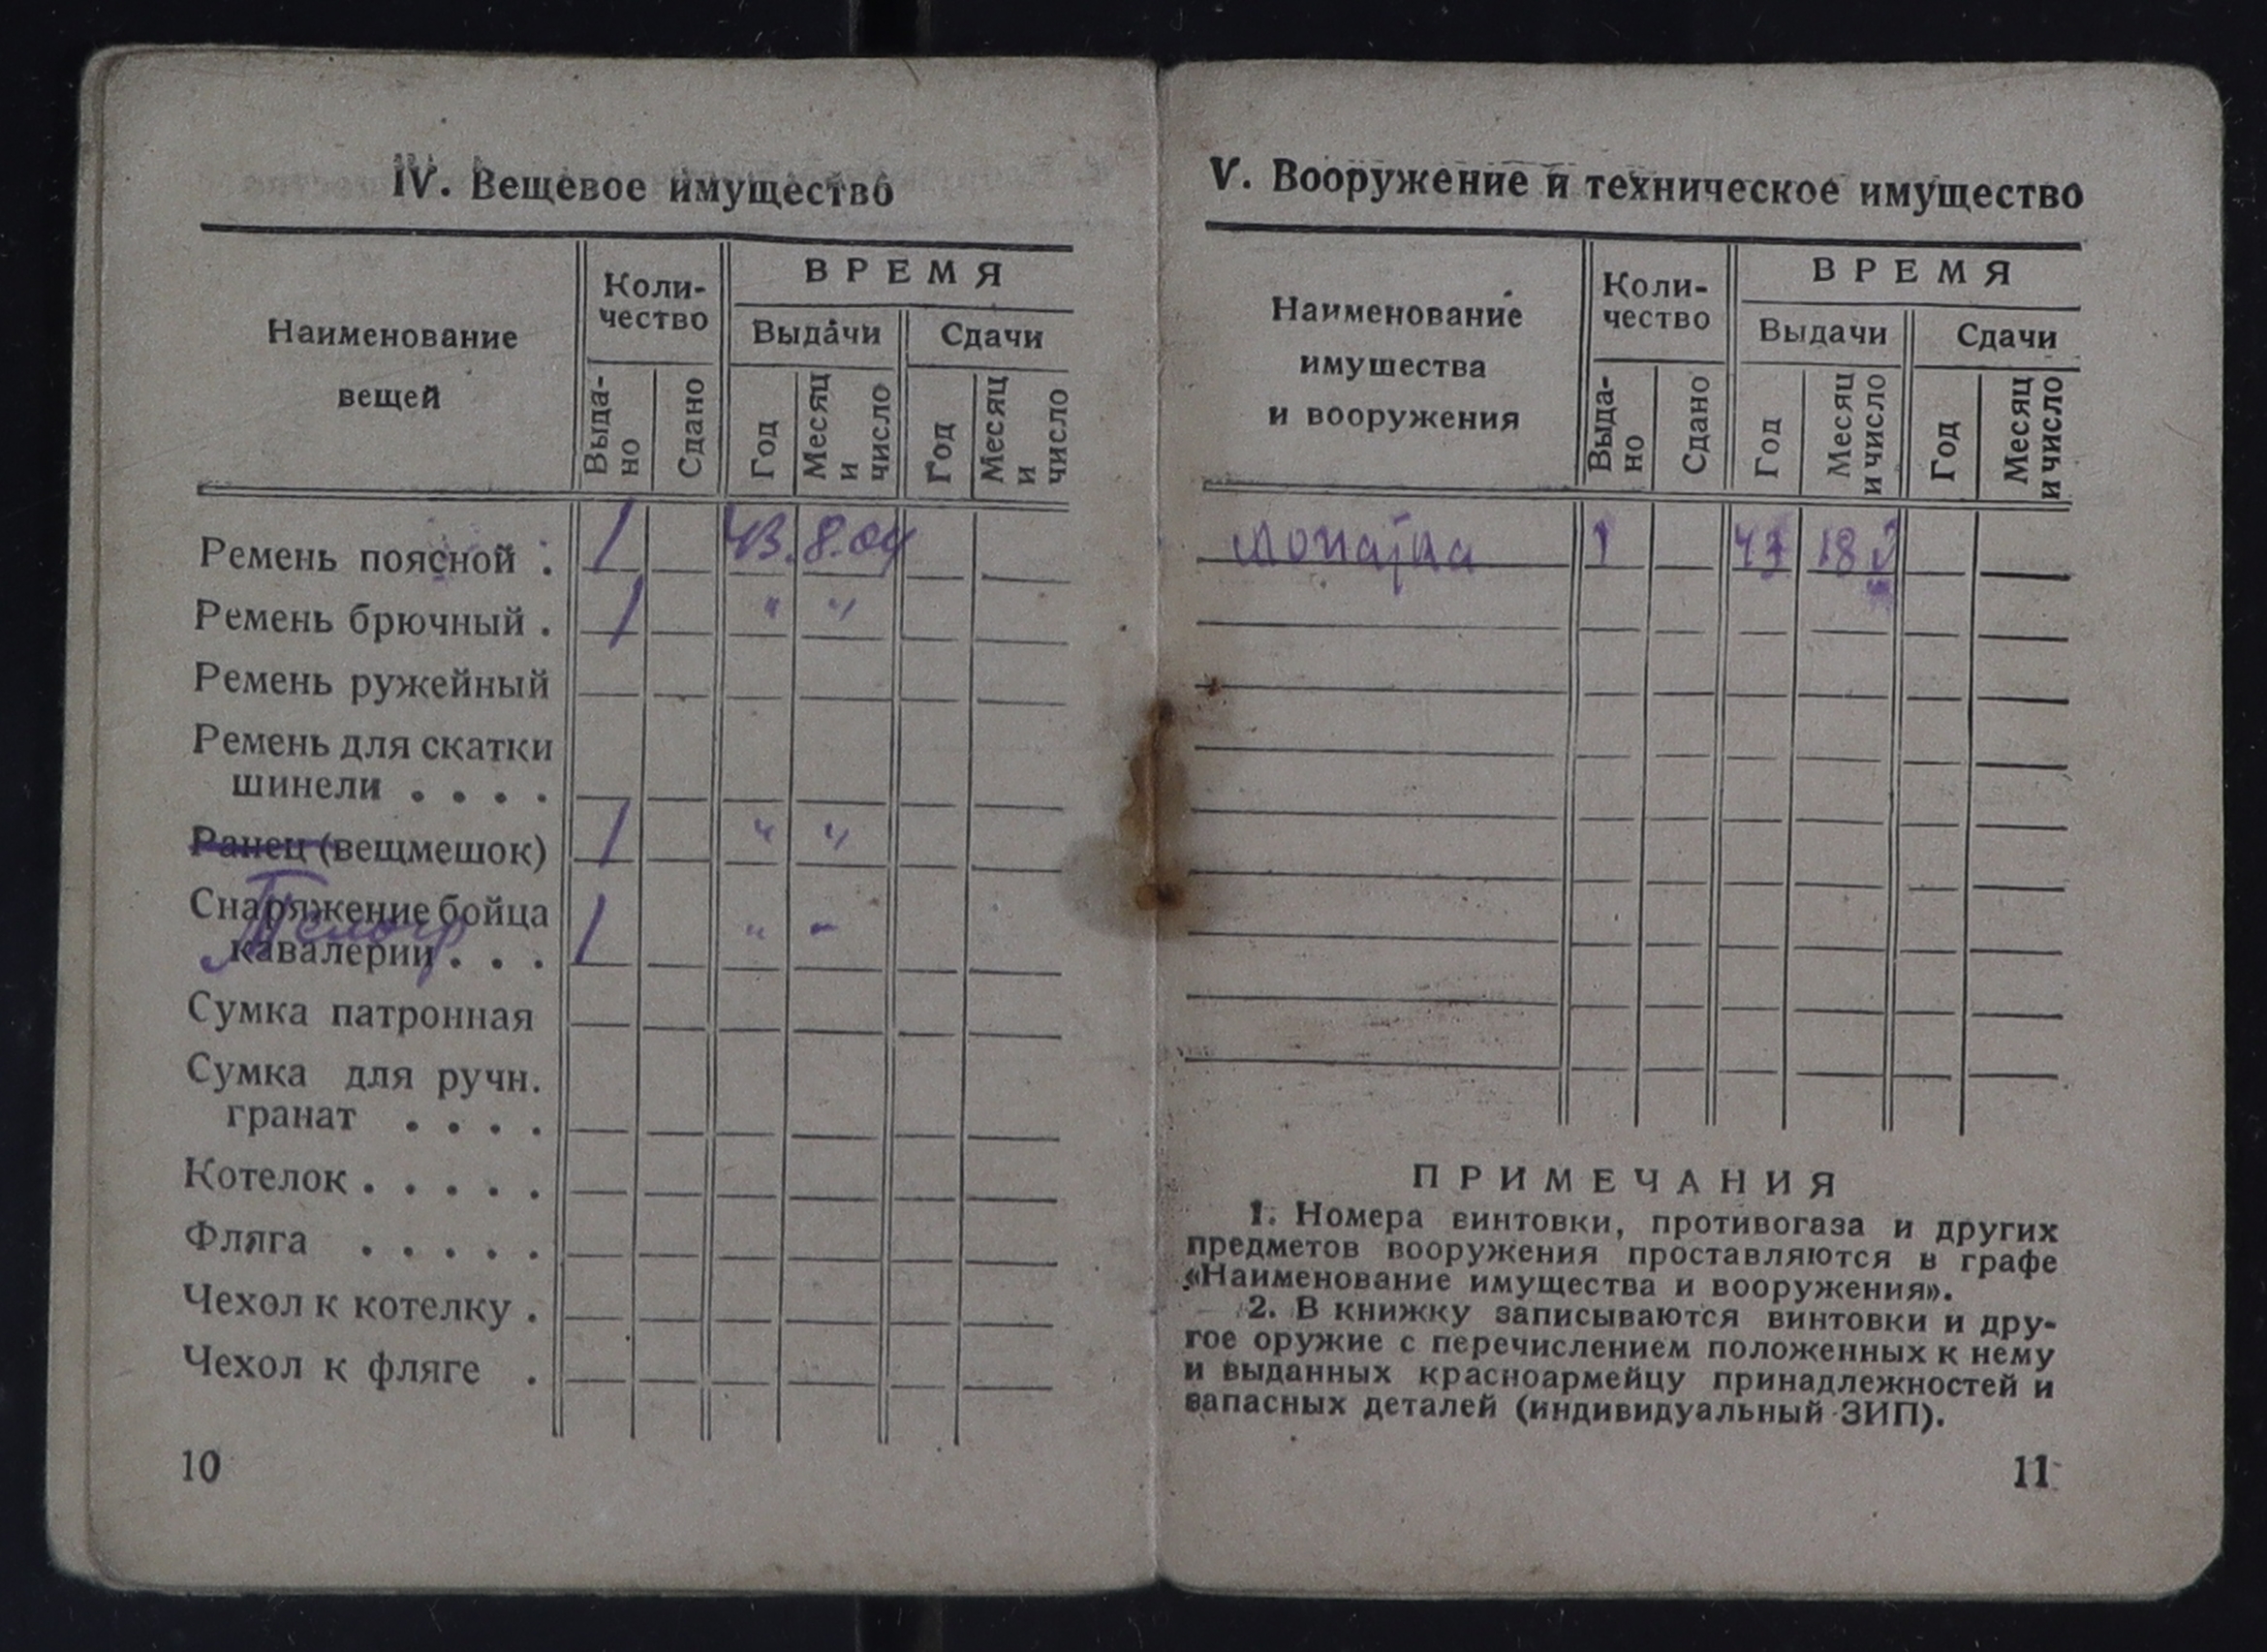 IV. Вещевое имущество
Наименование вещей
Количество
ВРЕМЯ
Выдачи
Сдачи
Выдано
Сдано
Год
Месяц и число
Год
Месяц и число
Ремень поясной . 1 43. 8.04
Ремень брючный . 1 " "
Ремень ружейный
Ремень для скатки
шинели . . . .
Ранец (вещмешок) 1 " "
Снаряжение бойца
кавалерии . . . 1 " "
Сумка патронная
Сумка для ручн.
гранат . . . .
Котелок . . . . .
Фляга . . . . .
Чехол к котелку .
Чехол к фляге .
10
V. Вооружение и техническое имущество
Наименование
имущества
и вооружения
Количество
ВРЕМЯ
Выдачи
Сдачи
Выдано
Сдано
Год
Месяц и число
Год
Месяц и число
лопатка 1 43 18
ПРИМЕЧАНИЯ
1. Номера винтовки, противогаза и других
предметов вооружения проставляются в графе
«Наименование имущества и вооружения».
2. В книжку записываются винтовки и дру-
гое оружие с перечислением положенных к нему
и выданных красноармейцу принадлежностей и
запасных деталей (индивидуальный ЗИП).
11